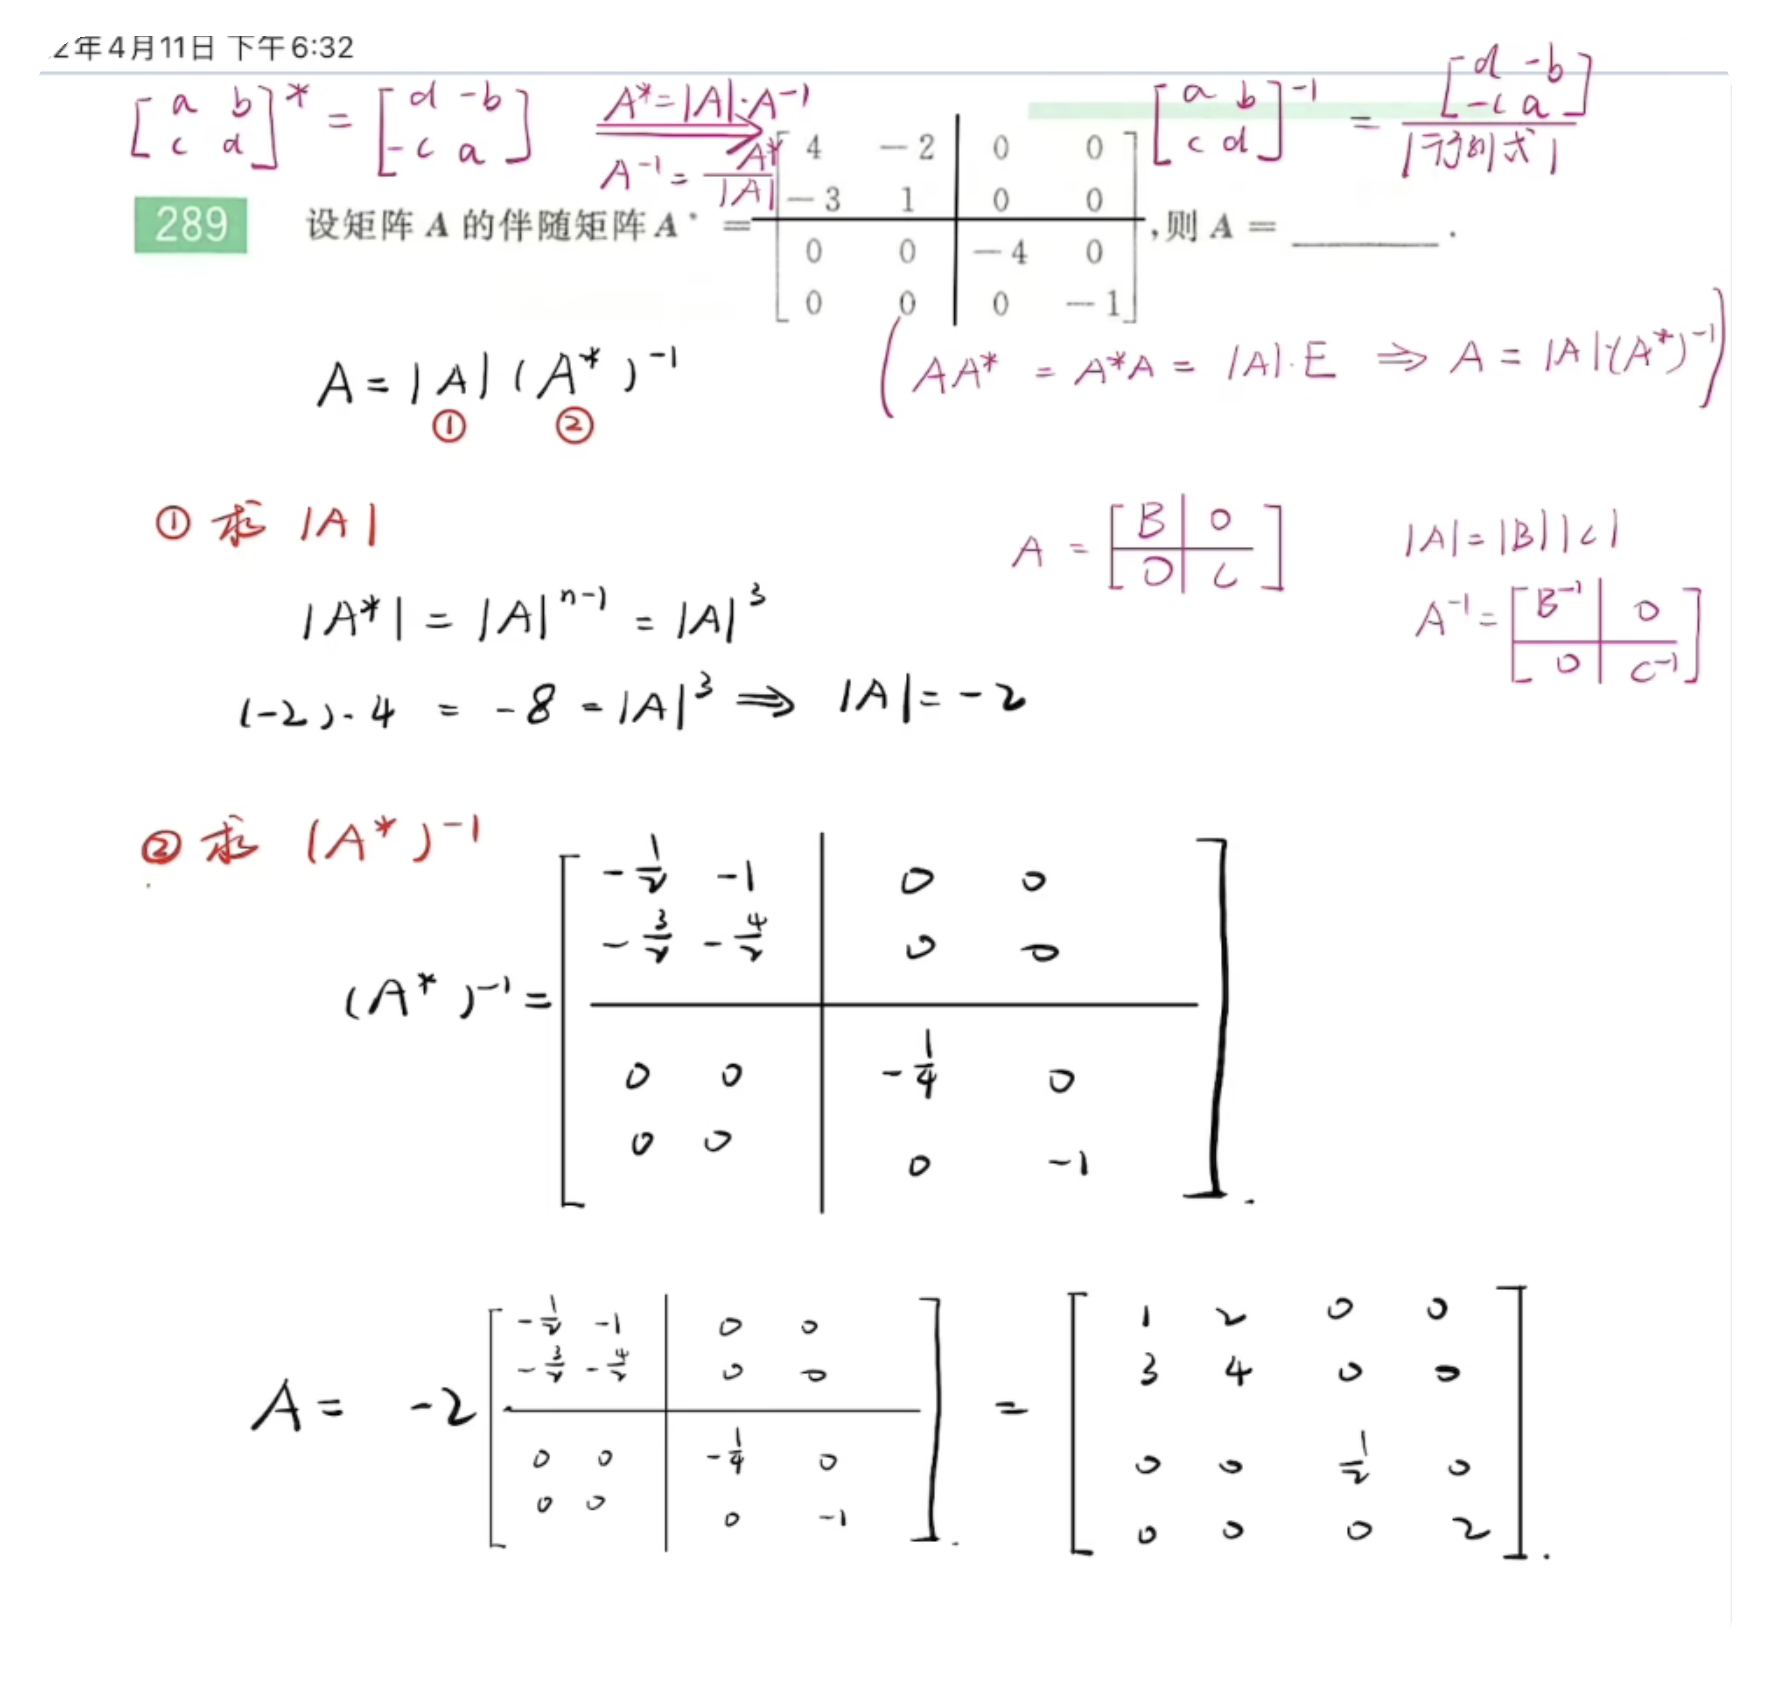 2年4月11日 下午6:32
[a b; c d]* = [d -b; -c a]  A*=|A|·A⁻¹  A⁻¹ = A*/|A|  [a b; c d]⁻¹ = [d -b; -c a]/|行列式|
289 设矩阵 A 的伴随矩阵 A* = [4 -2 0 0; -3 1 0 0; 0 0 -4 0; 0 0 0 -1], 则 A = ______.
A = |A| (A*)⁻¹  (AA* = A*A = |A|·E ⇒ A = |A|·(A*)⁻¹)
① ②
① 求 |A|  A = [B 0; 0 C]  |A| = |B||C|
|A*| = |A|ⁿ⁻¹ = |A|³  A⁻¹ = [B⁻¹ 0; 0 C⁻¹]
(-2)·4 = -8 = |A|³ ⇒ |A| = -2
② 求 (A*)⁻¹
(A*)⁻¹ = [-1/2 -1 0 0; -3/2 -4/2 0 0; 0 0 -1/4 0; 0 0 0 -1].
A = -2 [-1/2 -1 0 0; -3/2 -4/2 0 0; 0 0 -1/4 0; 0 0 0 -1]. = [1 2 0 0; 3 4 0 0; 0 0 1/2 0; 0 0 0 2].